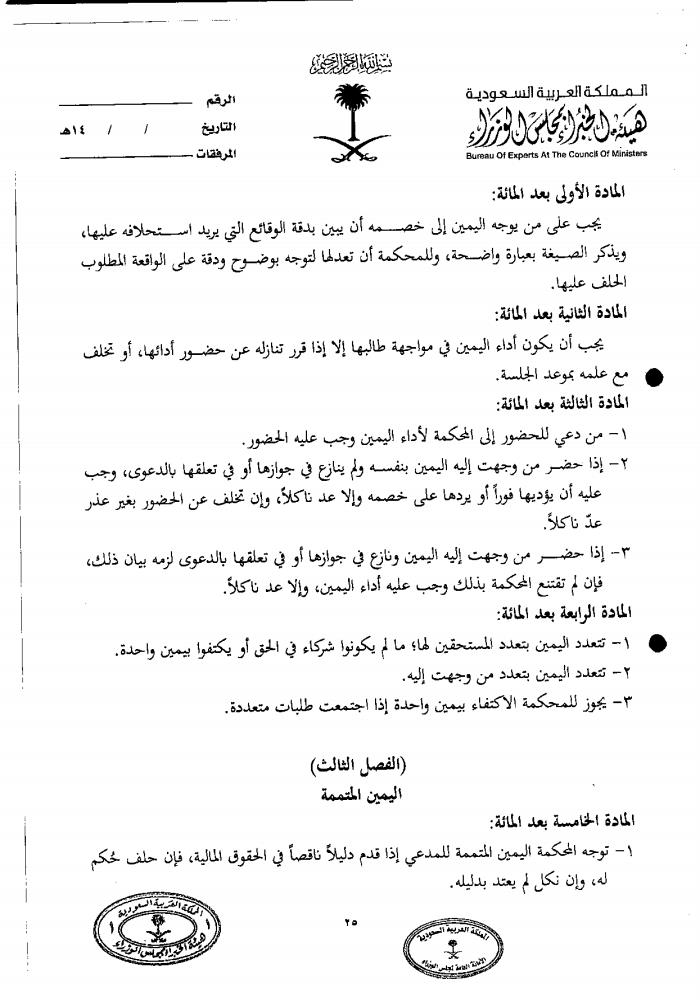 بسم الله الرحمن الرحيم
المملكة العربية السعودية
هيئة الخبراء بمجلس الوزراء
Bureau Of Experts At The Council Of Ministers
الرقم
التاريخ / / ١٤هـ
المرفقات
المادة الأولى بعد المائة:
يجب على من يوجه اليمين إلى خصمه أن يبين بدقة الوقائع التي يريد استحلافه عليها،
ويذكر الصيغة بعبارة واضحة، وللمحكمة أن تعدلها لتوجه بوضوح ودقة على الواقعة المطلوب
الحلف عليها.
المادة الثانية بعد المائة:
يجب أن يكون أداء اليمين في مواجهة طالبها إلا إذا قرر تنازله عن حضور أدائها، أو تخلف
مع علمه بموعد الجلسة.
المادة الثالثة بعد المائة:
١- من دعي للحضور إلى المحكمة لأداء اليمين وجب عليه الحضور.
٢- إذا حضر من وجهت إليه اليمين بنفسه ولم ينازع في جوازها أو في تعلقها بالدعوى، وجب
عليه أن يؤديها فوراً أو يردها على خصمه وإلا عد ناكلاً، وإن تخلف عن الحضور بغير عذر
عدّ ناكلاً.
٣- إذا حضر من وجهت إليه اليمين ونازع في جوازها أو في تعلقها بالدعوى لزمه بيان ذلك،
فإن لم تقتنع المحكمة بذلك وجب عليه أداء اليمين، وإلا عد ناكلاً.
المادة الرابعة بعد المائة:
١- تتعدد اليمين بتعدد المستحقين لها؛ ما لم يكونوا شركاء في الحق أو يكتفوا بيمين واحدة.
٢- تتعدد اليمين بتعدد من وجهت إليه.
٣- يجوز للمحكمة الاكتفاء بيمين واحدة إذا اجتمعت طلبات متعددة.
(الفصل الثالث)
اليمين المتممة
المادة الخامسة بعد المائة:
١- توجه المحكمة اليمين المتممة للمدعي إذا قدم دليلاً ناقصاً في الحقوق المالية، فإن حلف حُكم
له، وإن نكل لم يعتد بدليله.
٢٥
المملكة العربية السعودية
هيئة الخبراء بمجلس الوزراء
المملكة العربية السعودية
الأمانة العامة لمجلس الوزراء